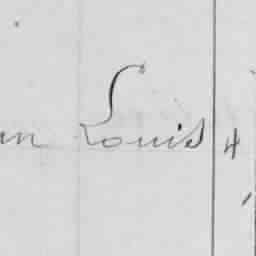 Louis 4